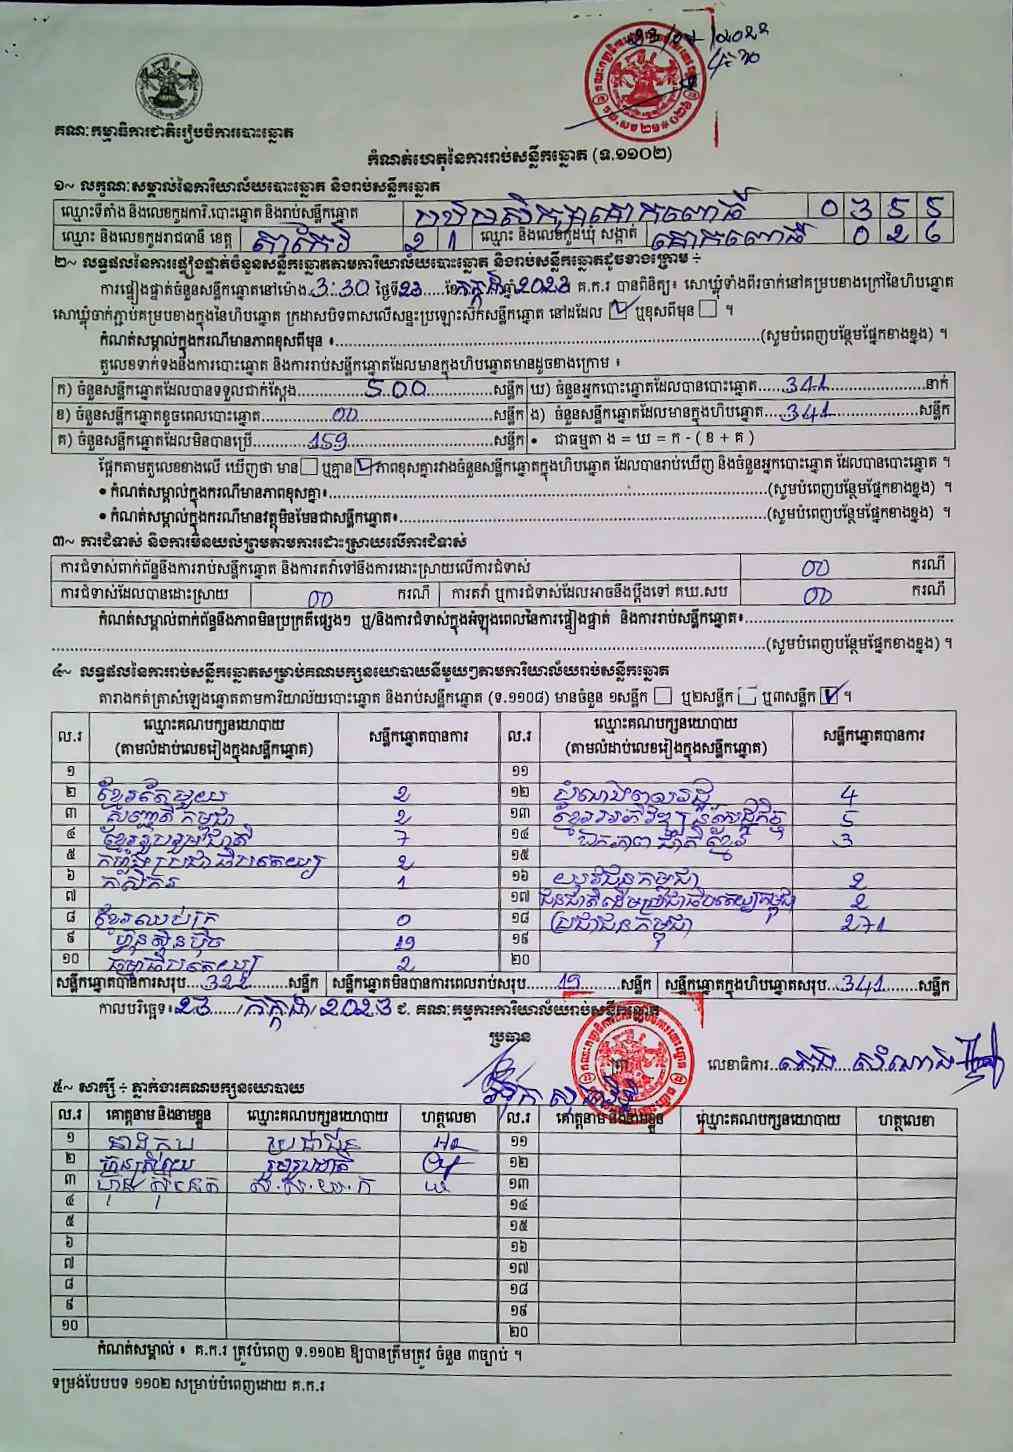 គណៈកម្មាធិការជាតិរៀបចំការបោះឆ្នោត
កំណត់ហេតុនៃការរាប់សន្លឹកឆ្នោត (ទ.១១០២)
១~ លក្ខណៈសម្គាល់នៃការិយាល័យបោះឆ្នោត និងរាប់សន្លឹកឆ្នោត
ឈ្មោះទីតាំង និងលេខកូដការិ.បោះឆ្នោត និងរាប់សន្លឹកឆ្នោត 0 3 5 5
ឈ្មោះ និងលេខកូដរាជធានី ខេត្ត តាកែវ 2 1 ឈ្មោះ និងលេខកូដឃុំ សង្កាត់ គោកពោធិ៍ 0 2
២~ លទ្ធផលនៃការផ្ទៀងផ្ទាត់ចំនួនសន្លឹកឆ្នោតតាមការិយាល័យបោះឆ្នោត និងរាប់សន្លឹកឆ្នោតដូចខាងក្រោម ÷
ការផ្ទៀងផ្ទាត់ចំនួនសន្លឹកឆ្នោតនៅម៉ោង 3:30 ថ្ងៃទី 23 ខែ កក្កដា ឆ្នាំ 2023 គ.ក.រ បានពិនិត្យ៖ សោឃ្លុំទាំងពីរចាក់នៅគម្របខាងក្រៅនៃហិបឆ្នោត
សោឃ្លុំចាក់ភ្ជាប់គម្របខាងក្នុងនៃហិបឆ្នោត ក្រដាសបិទពាសលើសន្ទះប្រឡោះស៊កសន្លឹកឆ្នោត នៅដដែល ឬខុសពីមុន ។
កំណត់សម្គាល់ក្នុងករណីមានភាពខុសពីមុន ៖ (សូមបំពេញបន្ថែមផ្នែកខាងខ្នង) ។
តួលេខទាក់ទងនឹងការបោះឆ្នោត និងការរាប់សន្លឹកឆ្នោតដែលមានក្នុងហិបឆ្នោតមានដូចខាងក្រោម ៖
ក) ចំនួនសន្លឹកឆ្នោតដែលបានទទួលជាក់ស្តែង 500 សន្លឹក ឃ) ចំនួនអ្នកបោះឆ្នោតដែលបានបោះឆ្នោត 341 នាក់
ខ) ចំនួនសន្លឹកឆ្នោតខូចពេលបោះឆ្នោត 00 សន្លឹក ង) ចំនួនសន្លឹកឆ្នោតដែលមានក្នុងហិបឆ្នោត 341 សន្លឹក
គ) ចំនួនសន្លឹកឆ្នោតដែលមិនបានប្រើ 159 សន្លឹក • ជាធម្មតា ង = ឃ = ក - ( ខ + គ )
ផ្អែកតាមតួលេខខាងលើ ឃើញថា មាន ឬគ្មាន ភាពខុសគ្នារវាងចំនួនសន្លឹកឆ្នោតក្នុងហិបឆ្នោត ដែលបានរាប់ឃើញ និងចំនួនអ្នកបោះឆ្នោត ដែលបានបោះឆ្នោត ។
• កំណត់សម្គាល់ក្នុងករណីមានភាពខុសគ្នា៖ (សូមបំពេញបន្ថែមផ្នែកខាងខ្នង) ។
• កំណត់សម្គាល់ក្នុងករណីមានវត្ថុមិនមែនជាសន្លឹកឆ្នោត៖ (សូមបំពេញបន្ថែមផ្នែកខាងខ្នង) ។
៣~ ការជំទាស់ និងការមិនយល់ព្រមតាមការដោះស្រាយលើការជំទាស់
ការជំទាស់ពាក់ព័ន្ធនឹងការរាប់សន្លឹកឆ្នោត និងការតវ៉ាទៅនឹងការដោះស្រាយលើការជំទាស់ 00 ករណី
ការជំទាស់ដែលបានដោះស្រាយ 00 ករណី ការតវ៉ា ឬការជំទាស់ដែលអាចនឹងប្តឹងទៅ គឃ.សប 00 ករណី
កំណត់សម្គាល់ពាក់ព័ន្ធនឹងភាពមិនប្រក្រតីផ្សេងៗ ឬ/និងការជំទាស់ក្នុងអំឡុងពេលនៃការផ្ទៀងផ្ទាត់ និងការរាប់សន្លឹកឆ្នោត៖
(សូមបំពេញបន្ថែមផ្នែកខាងខ្នង) ។
៤~ លទ្ធផលនៃការរាប់សន្លឹកឆ្នោតសម្រាប់គណបក្សនយោបាយនីមួយៗតាមការិយាល័យរាប់សន្លឹកឆ្នោត
តារាងកត់ត្រាសំឡេងឆ្នោតតាមការិយាល័យបោះឆ្នោត និងរាប់សន្លឹកឆ្នោត (ទ.១១០៨) មានចំនួន ១សន្លឹក ឬ២សន្លឹក ឬ៣សន្លឹក ។
ល.រ ឈ្មោះគណបក្សនយោបាយ (តាមលំដាប់លេខរៀងក្នុងសន្លឹកឆ្នោត) សន្លឹកឆ្នោតបានការ ល.រ ឈ្មោះគណបក្សនយោបាយ (តាមលំដាប់លេខរៀងក្នុងសន្លឹកឆ្នោត) សន្លឹកឆ្នោតបានការ
១ ១១
២ ខ្មែរតែមួយ 2 ១២ 4
៣ សញ្ជាតិកម្ពុជា 2 ១៣ ខ្មែរអភិវឌ្ឍន៍សេដ្ឋកិច្ច 5
៤ ខ្មែររួបរួមជាតិ 7 ១៤ ឯកភាពជាតិខ្មែរ 3
៥ កម្លាំងប្រជាធិបតេយ្យ 2 ១៥
៦ កសិករ 1 ១៦ យុវជនកម្ពុជា 2
៧ ១៧ ជនជាតិដើមប្រជាធិបតេយ្យកម្ពុជា 2
៨ ខ្មែរឈប់ក្រ 0 ១៨ ប្រជាជនកម្ពុជា 271
៩ ហ្វ៊ុនស៊ិនប៉ិច 19 ១៩
១០ ធម្មាធិបតេយ្យ 2 ២០
សន្លឹកឆ្នោតបានការសរុប 322 សន្លឹក សន្លឹកឆ្នោតមិនបានការពេលរាប់សរុប 19 សន្លឹក សន្លឹកឆ្នោតក្នុងហិបឆ្នោតសរុប 341 សន្លឹក
កាលបរិច្ឆេទ៖ 23 / កក្កដា / 2023 ជ. គណៈកម្មការការិយាល័យរាប់សន្លឹកឆ្នោត
ប្រធាន
លេខាធិការ
៥~ សាក្សី ÷ ភ្នាក់ងារគណបក្សនយោបាយ
ល.រ គោត្តនាម និងនាមខ្លួន ឈ្មោះគណបក្សនយោបាយ ហត្ថលេខា ល.រ គោត្តនាម និងនាមខ្លួន ឈ្មោះគណបក្សនយោបាយ ហត្ថលេខា
១ ប្រជាជន ១១
២ រួបរួមជាតិ ១២
៣ ១៣
៤ ១៤
៥ ១៥
៦ ១៦
៧ ១៧
៨ ១៨
៩ ១៩
១០ ២០
កំណត់សម្គាល់ ៖ គ.ក.រ ត្រូវបំពេញ ទ.១១០២ ឱ្យបានត្រឹមត្រូវ ចំនួន ៣ច្បាប់ ។
ទម្រង់បែបបទ ១១០២ សម្រាប់បំពេញដោយ គ.ក.រ